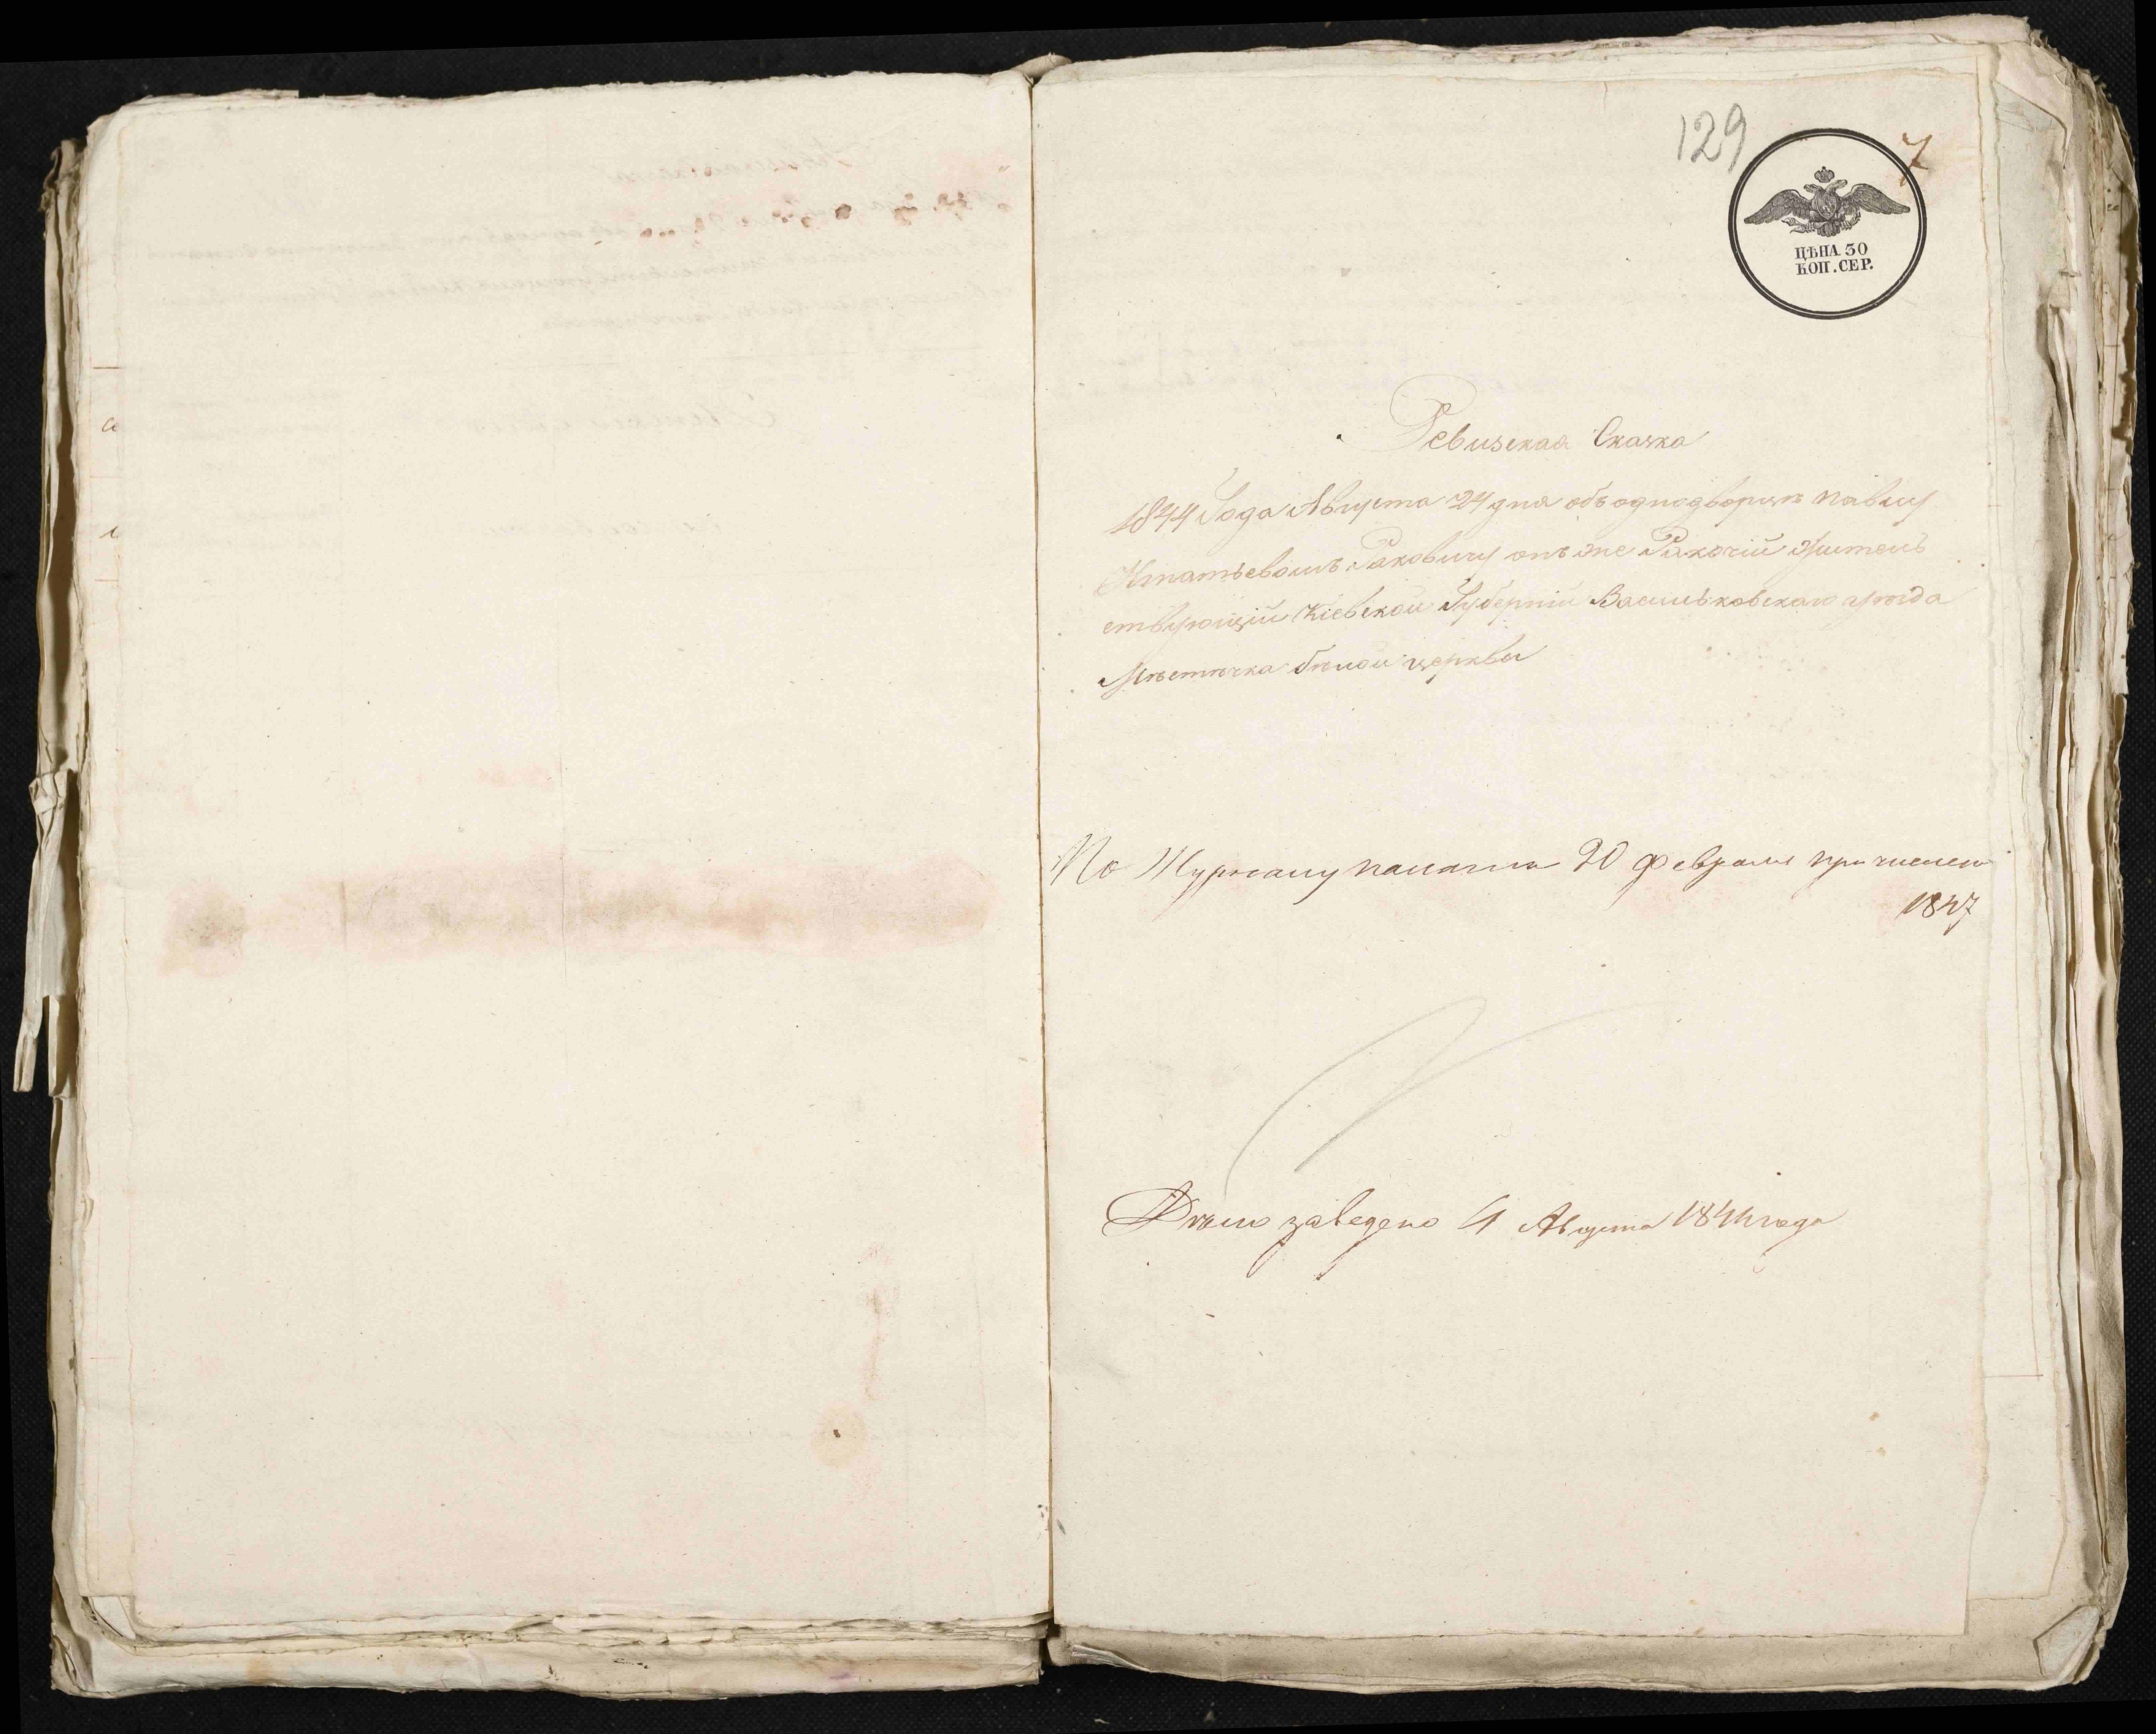 129
7
ЦѢНА 30
КОП. СЕР.
Ревизская Сказка
1844 Года Августа 24 дня объ однодворцѣ павлу
Игнатьевомъ Раковичу онъ же Ракочій Жытель
ствующій Кіевской Губерніи Васильковскаго уѣзда
Мѣстѣчка бѣлой церквы
По Журналу палаты 20 февраля причислен
1847
Дѣло заведено 4 Августа 1844 года